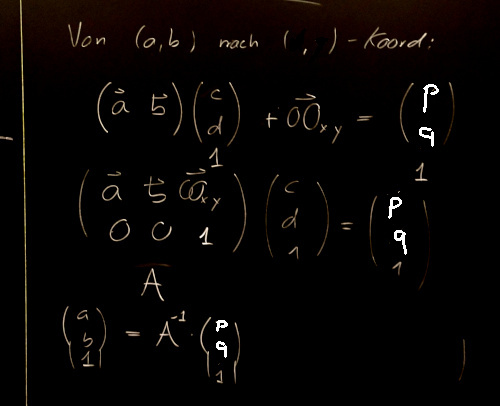 Von (a,b) nach ( , ) - Koord:
(a⃗ b⃗) (c d 1) + OO⃗xy = (p q 1)
(a⃗ b⃗ OO⃗xy 0 0 1) (c d 1) = (p q 1)
A
(a b 1) = A⁻¹ · (p q 1)